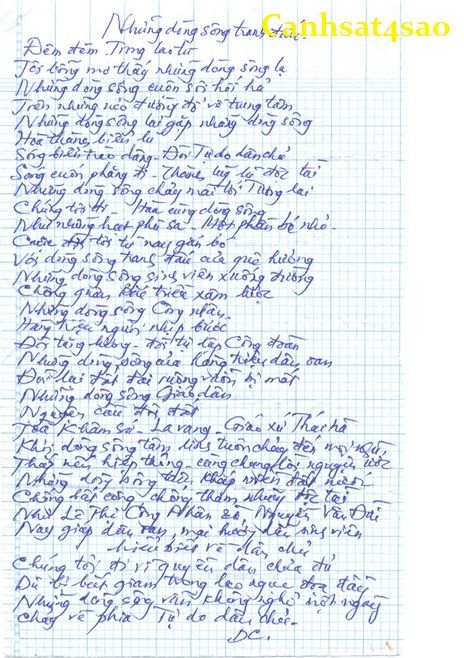 Canhsat4sao
Những dòng sông tranh đấu.
Đêm đêm. Trong lao tù
Tôi bỗng mơ thấy những dòng sông lạ
Những dòng sông cuồn sôi hối hả
Trên những nẻo đường đổ về trung tâm
Những dòng sông lại gặp những dòng sông
Hòa thành biển lũ
Sóng biển trào dâng - Đòi Tự do dân chủ
Sóng cuốn phăng đi - Thành lũy lũ độc tài
Những dòng sông chảy mãi tới Tương lai
Chúng tôi đi - Hòa cùng dòng sông
Như những hạt phù sa - Một phần bé nhỏ.
Cuộc đời tôi từ nay gắn bó
Với dòng sông tranh đấu của quê hương
Những dòng sông sinh viên xuống đường
Chống quân xâm lược
Những dòng sông Công nhân
Hàng triệu người nhịp bước
Đòi tăng lương - đòi tự lập Công đoàn
Những dòng sông của hàng triệu dân oan
Đòi lại đất đai ruộng vườn bị mất
Những dòng sông Giáo dân
Nguyện cầu đòi đất
Tòa Khâm sứ - La vang - Giáo xứ Thái hà
Khơi dòng sông tâm linh tuôn chảy đến mọi nhà
Thắp nến hiệp thông - cùng chung lời nguyện ước
Những dòng sông trên khắp miền đất nước
Chống bất công - chống tham nhũng độc tài
Như Lê Thị Công Nhân và Nguyễn Văn Đài
Nay giúp dân oan, mai hướng dẫn sinh viên
hiểu biết về dân chủ
Chúng tôi đi vì quyền dân chưa đủ
Dù bị bắt giam trong lao ngục đọa đầy
Những dòng sông vẫn không nghỉ một ngày
Chảy về phía Tự do dân chủ.
DC.